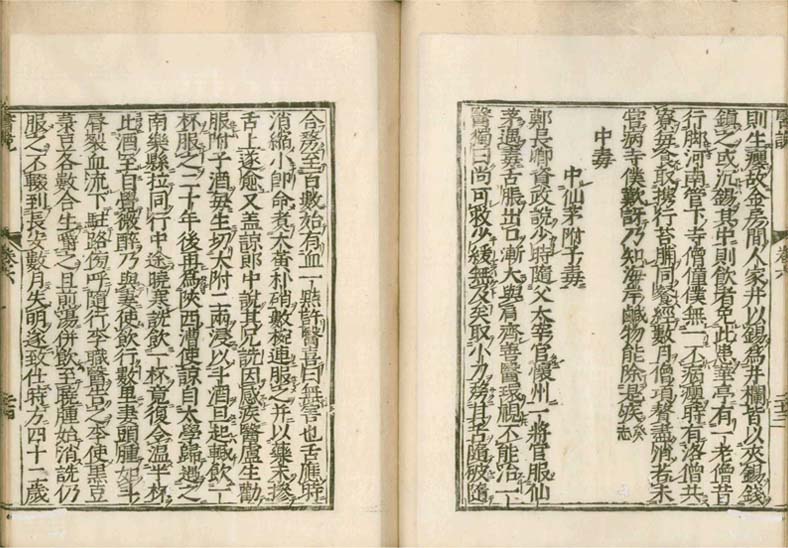 醫說
卷六
二十三
則生癭故金房間人家井以錫為井欄皆以夾錫錢
鎮之或沉錫其中則飲者免此患華亭有一老僧昔
行脚河南管下寺僧僮僕無一不病癭時有洛僧共
寮每食取攜行苔脯同餐經數月僧項贅盡消若未
嘗病寺僕歎訝乃知海岸鹹物能除是疾癸志
中毒
中仙茅附子毒
鄭長卿資政說少時隨父太宰官懷州一將官服仙
茅遇毒舌脹出口漸大與肩齊善醫環視不能治一
醫獨曰尚可救少緩無及矣取小刀剺其舌隨破隨
合剺至百數始有血一點許醫喜曰無害也舌應時
消縮小即命煮大黃朴硝數椀連服之并以藥末摻
舌上遂愈又蓋諒郎中說其兄詵因感疾醫盧生勸
服附子酒每生切大附二兩浸以斗酒旦起輒飲一
杯服之二十年後再為陝西漕使諒自太學歸過之
南樂縣拉同行中途曉寒詵飲一杯竟復令溫半杯
比酒至自覺微醉乃與妻使飲行數里妻頭腫如斗
脣裂血流下駐路傍呼隨行李職醫告之李使黑豆
菉豆各數合生嚼之且煎湯併飲至曉腫始消詵仍
服之不輟到長安數月失明遂致仕時方四十二歲
醫說
卷六
二十四